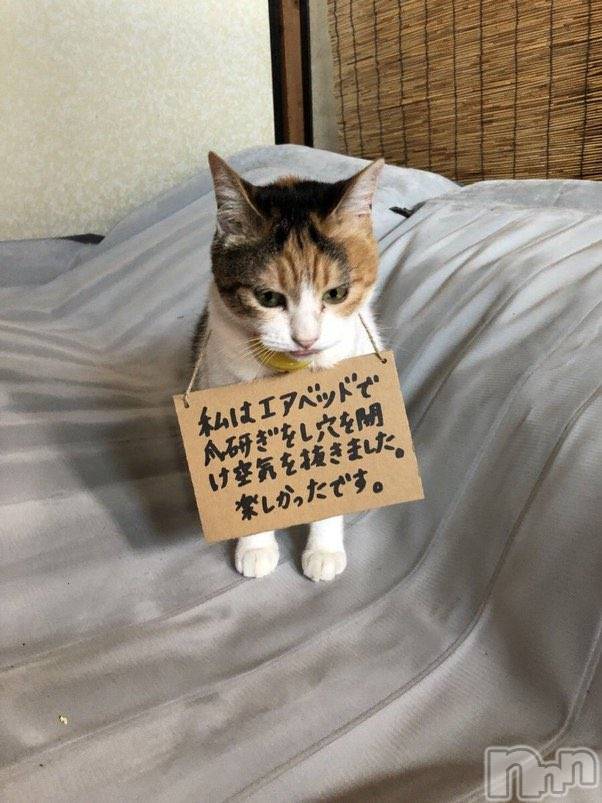 私はエアベッドで
爪研ぎをし穴を開
け空気を抜きました。
楽しかったです。
nnn